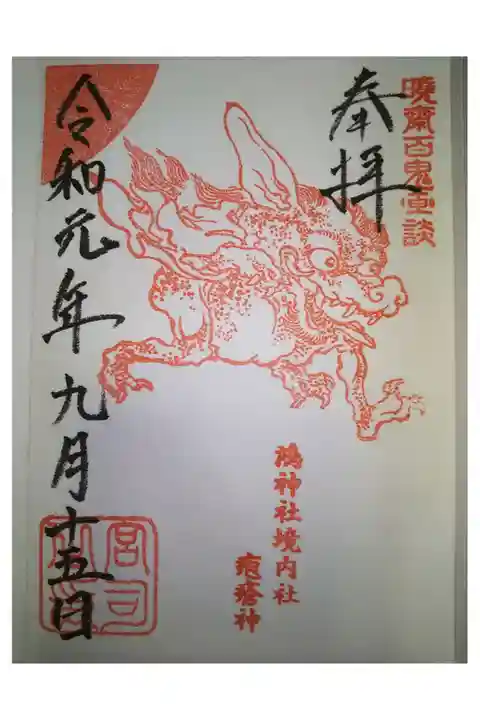 暁斎百鬼画談
奉拝
鴻神社境内社
疱瘡神
令和元年九月十五日
宮司